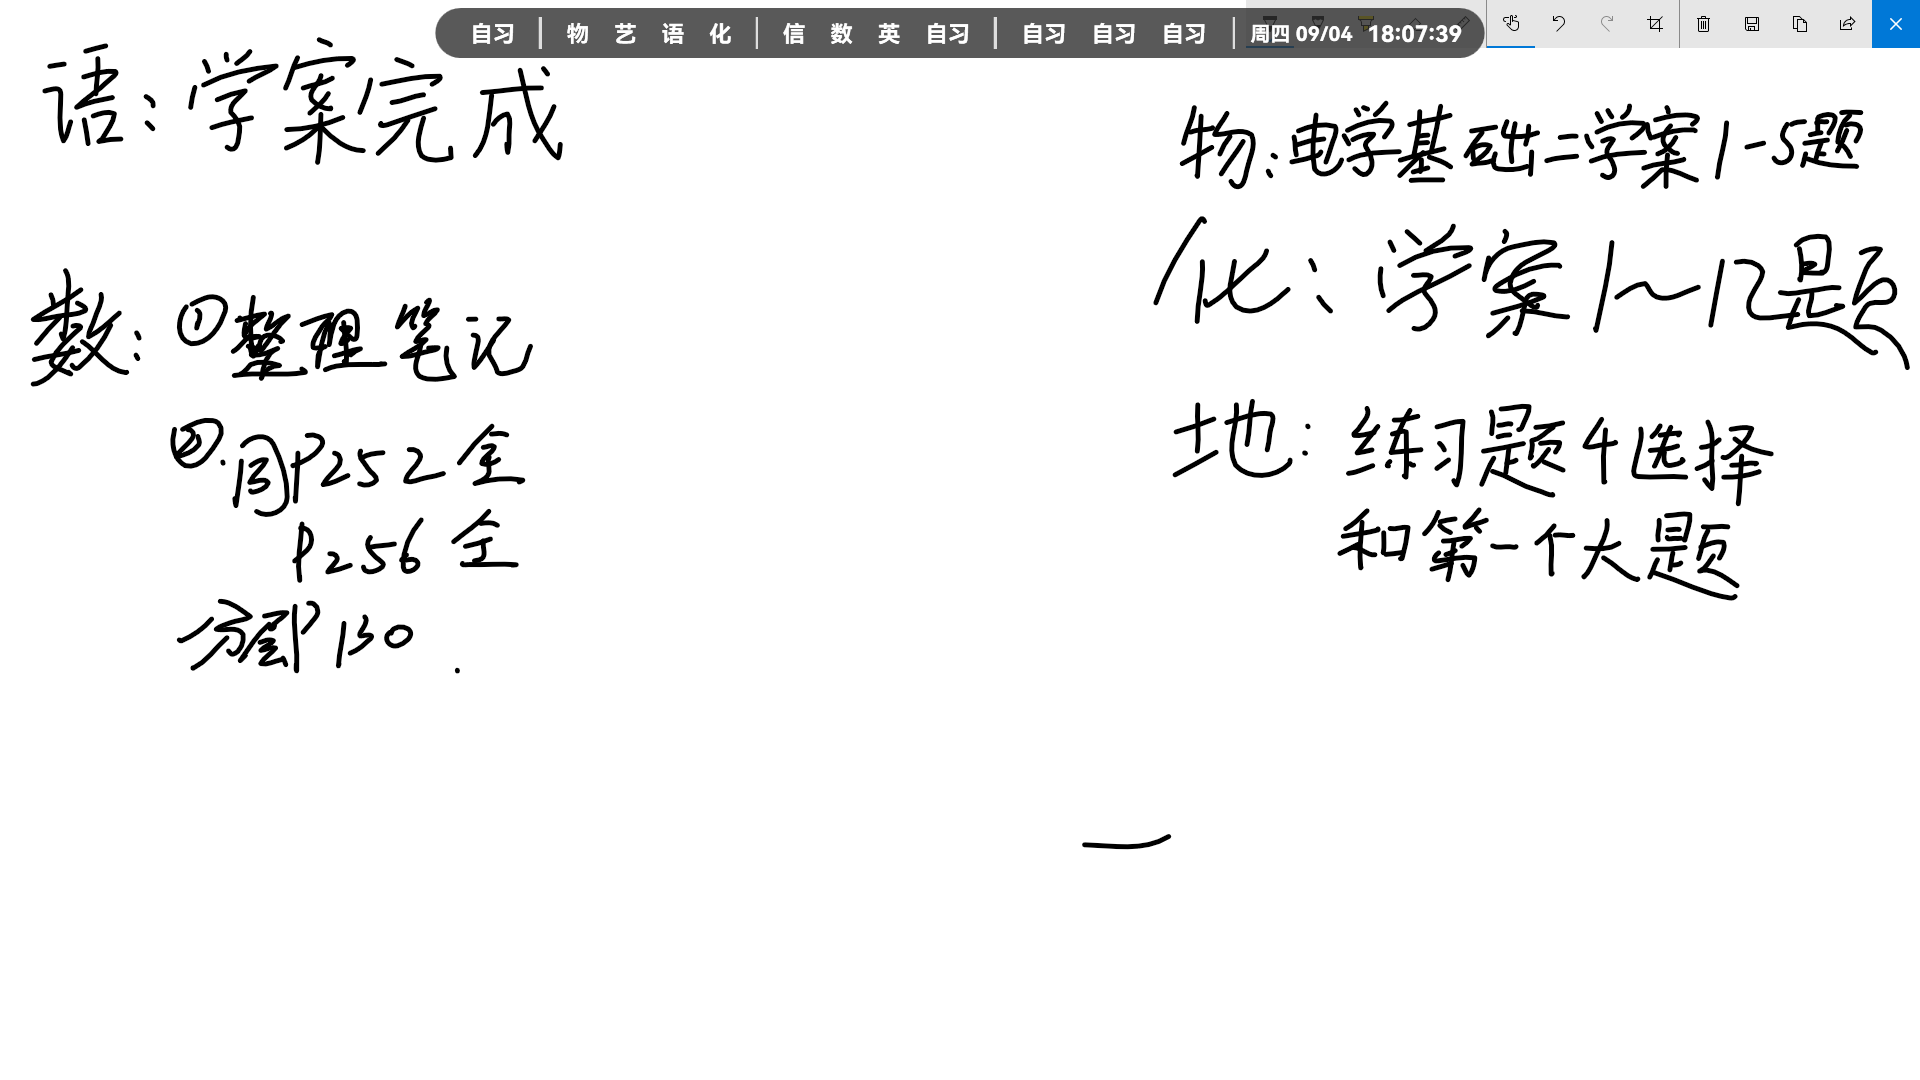 自习 | 物 艺 语 化 | 信 数 英 自习 | 自习 自习 自习 | 周四 09/04 18:07:39
语：学案完成
数：①整理笔记
②.同P252全
P256全
分层P130.
物：电学基础二学案1-5题
化：学案1～12题
地：练习题4选择
和第一个大题